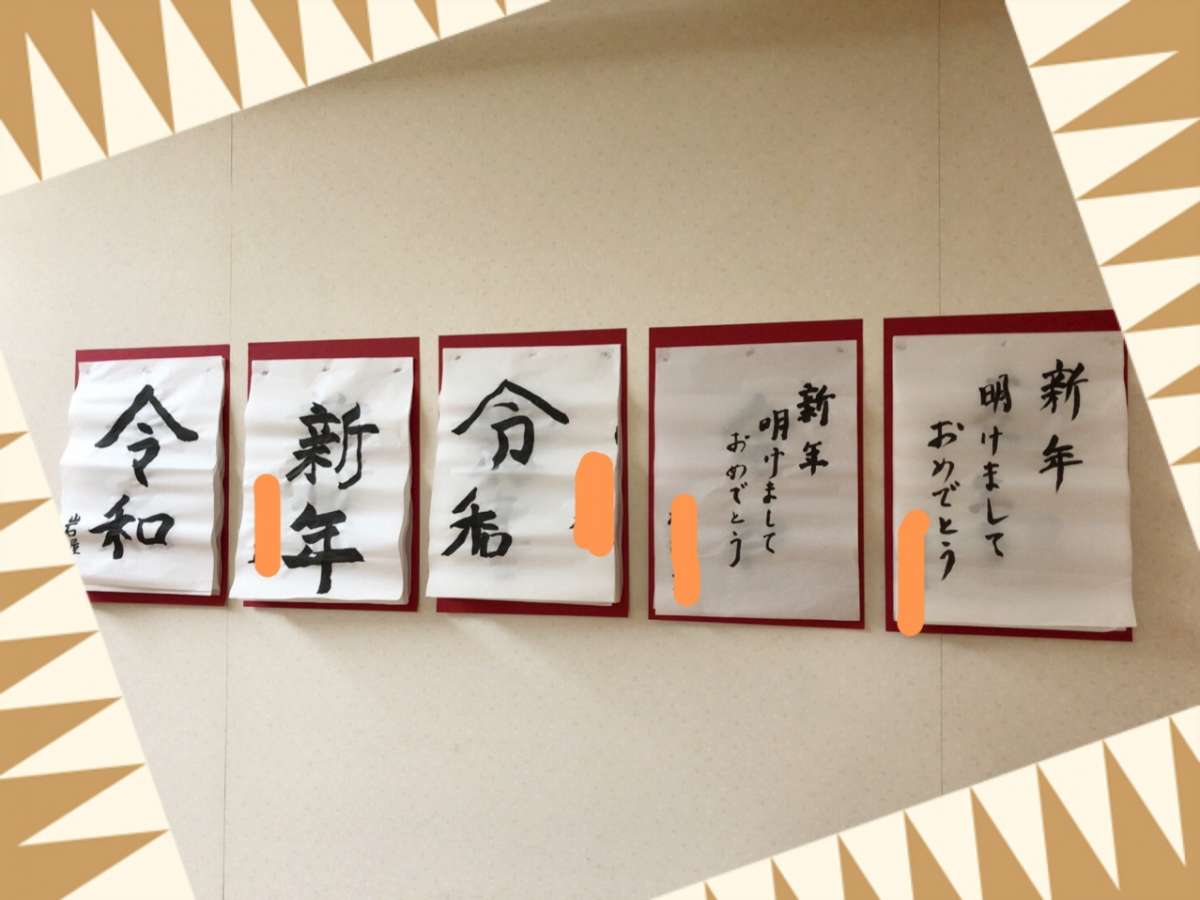 令和
岩屋
新年
令和
新年
明けまして
おめでとう
新年
明けまして
おめでとう